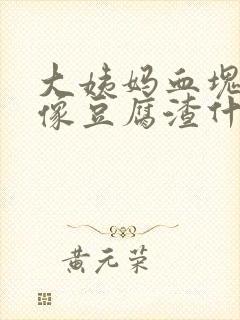 大姨妈血块
像豆腐渣什
黄元荣